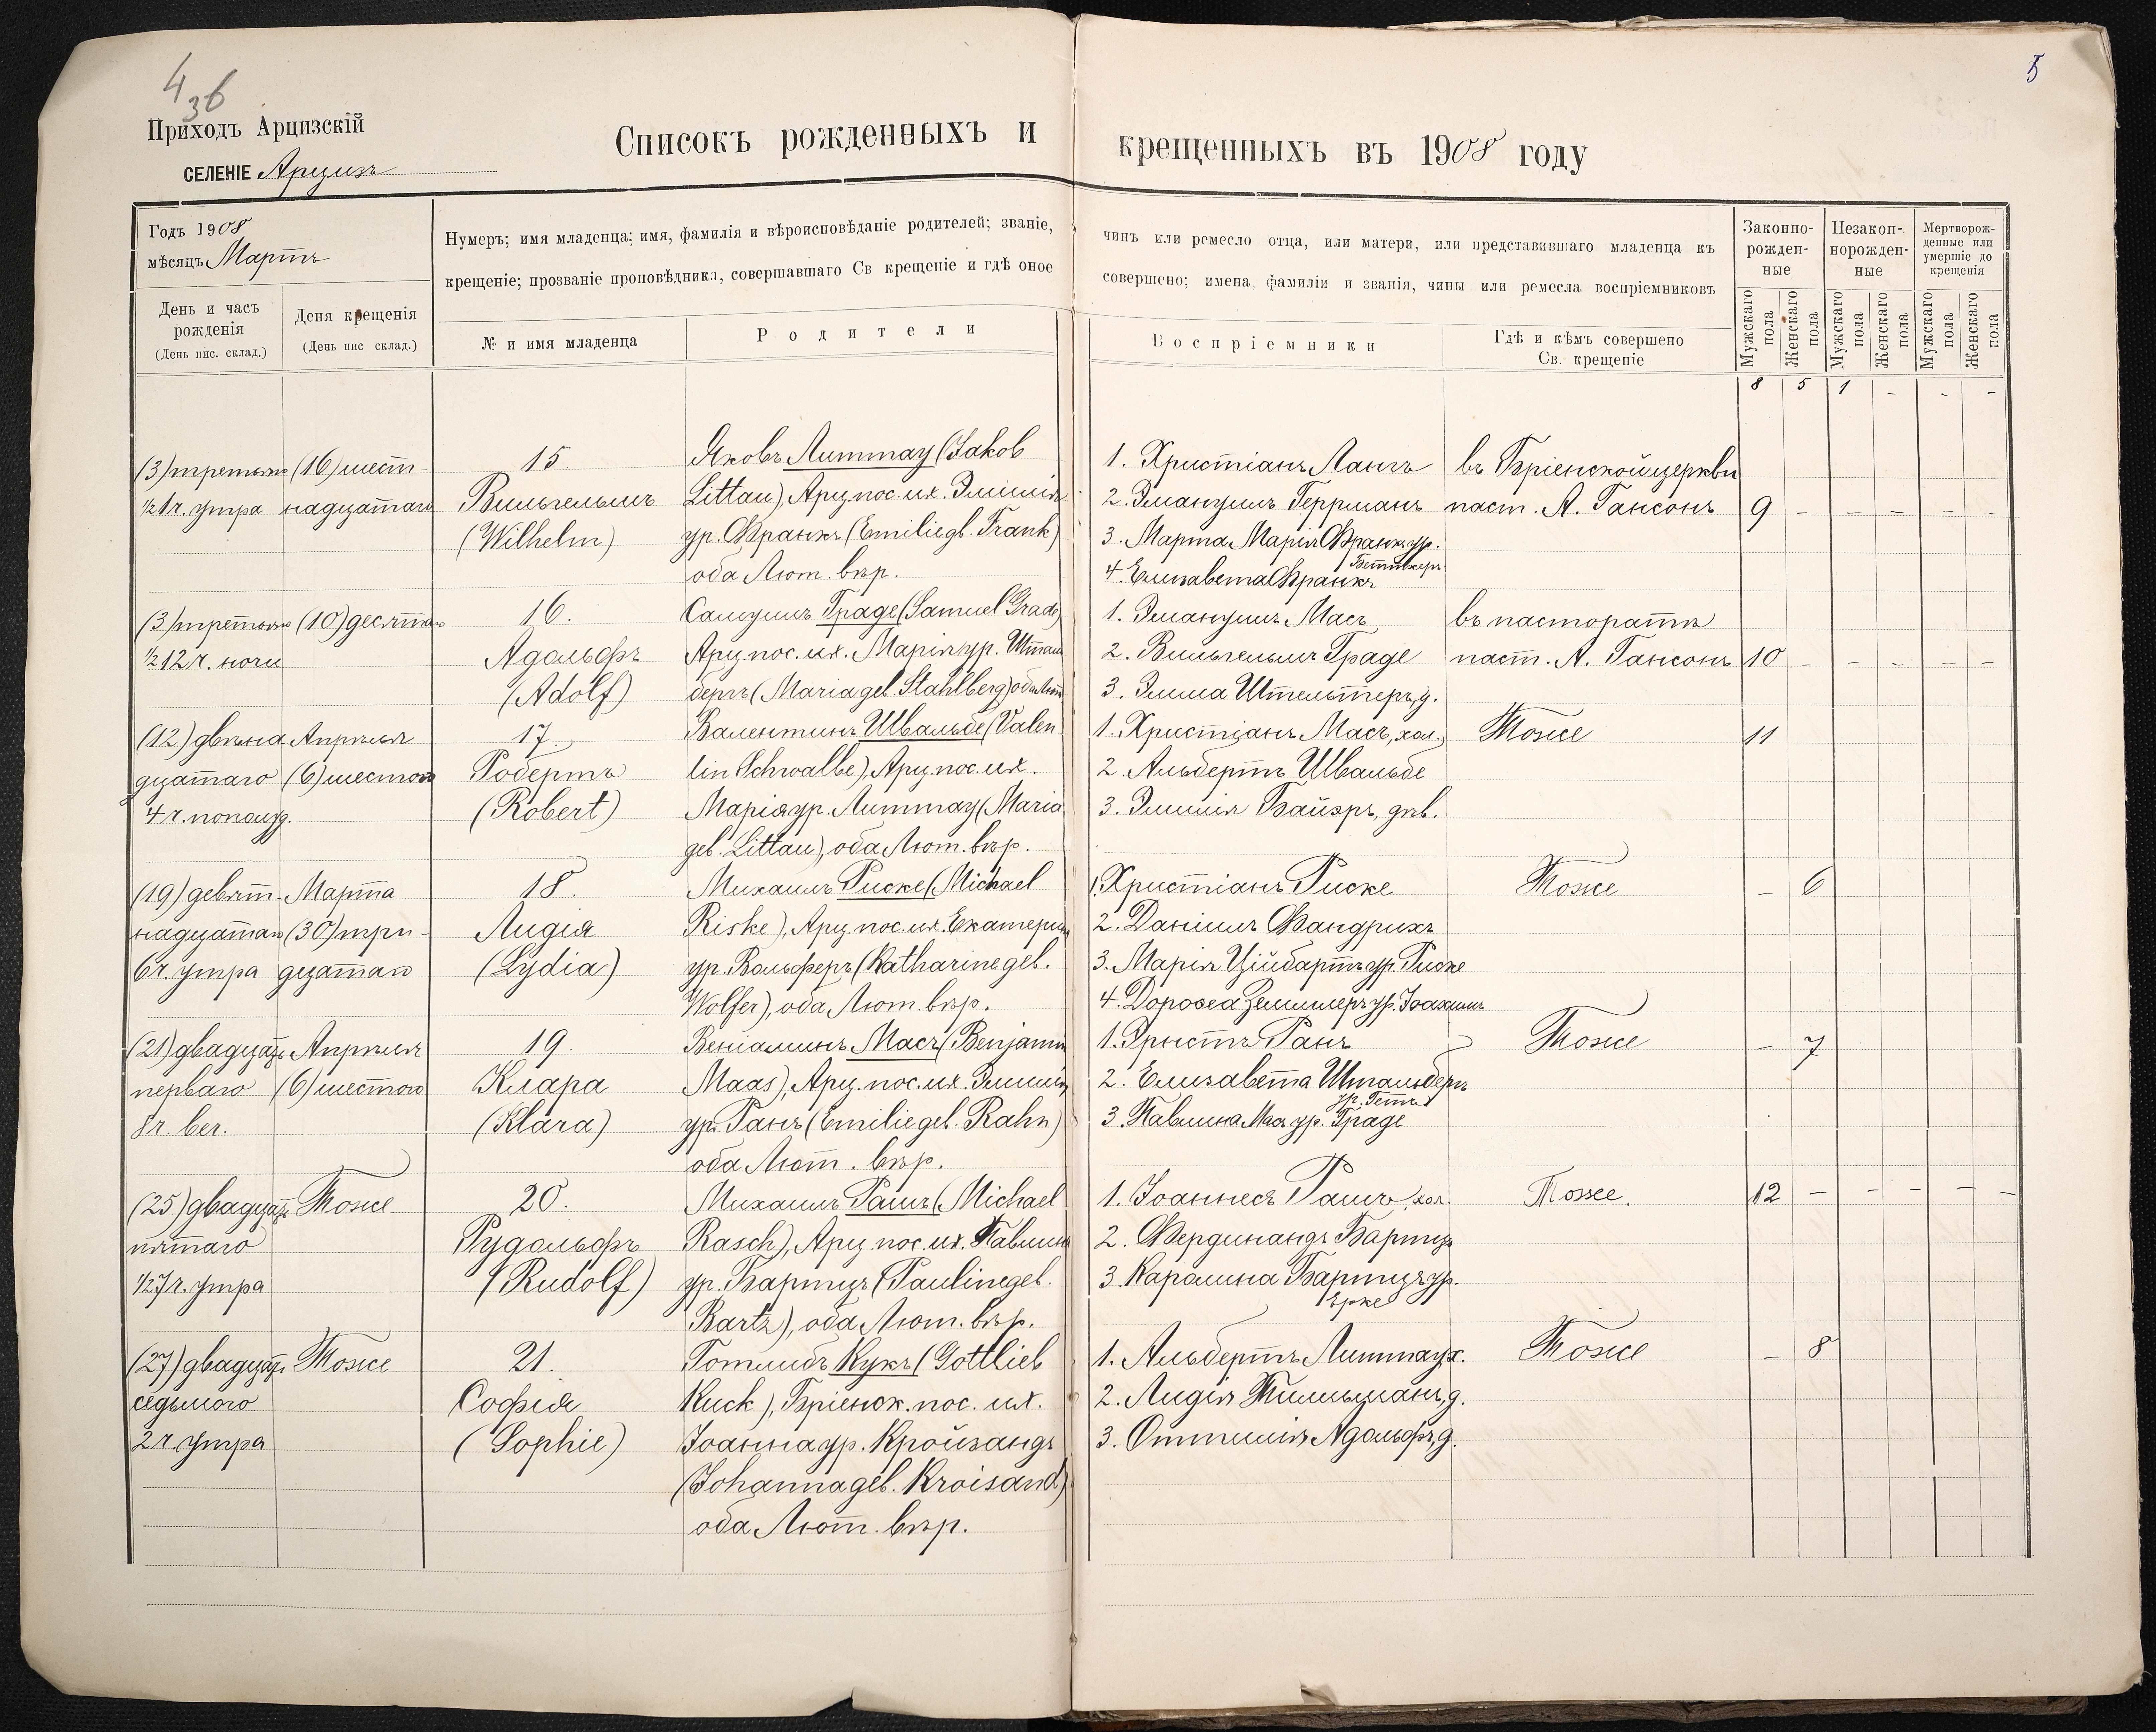 4
3б
5
Приходъ Арцизскій
СЕЛЕНІЕ Арцизъ
Списокъ рожденныхъ и крещенныхъ въ 1908 году
Годъ 1908
мѣсяцъ Мартъ
День и часъ
рожденія
(День пис. склад.)
Деня крещенія
(День пис склад.)
Нумеръ; имя младенца; имя, фамилія и вѣроисповѣданіе родителей; званіе,
крещеніе; прозваніе проповѣдника, совершавшаго Св крещеніе и гдѣ оное
№ и имя младенца
Родители
чинъ или ремесло отца, или матери, или представившаго младенца къ
совершено; имена, фамиліи и званія, чины или ремесла воспріемниковъ
Воспріемники
Гдѣ и кѣмъ совершено
Св. крещеніе
Законно-
рожден-
ные
Незакон-
норожден-
ные
Мертворож-
денные или
умершіе до
крещенія
Мужскаго пола
Женскаго пола
Мужскаго пола
Женскаго пола
Мужскаго пола
Женскаго пола
8 5 1 - - -
(3) третьяго (16) шест-
½1 ч. утра надцатаго
15.
Вильгельмъ
(Wilhelm)
Яковъ Литтау (Jakob
Littau), Арц. пос. их. Эмилія
ур. Франкъ (Emilie gb. Frank)
оба Лют. вѣр.
1. Христіанъ Лангъ
2. Эмануилъ Геррманъ
3. Марта Марія Франкъ ур.
Беттхеръ
4. Елизавета Франкъ
въ Бріенской церкви
паст. А. Гансонъ
9 - - - - -
(3) третьяго (10) десятаго
½12 ч. ночи
16.
Адольфъ
(Adolf)
Самуилъ Граде (Samuel Grade)
Арц. пос. их. Марія ур. Штал
бергъ (Maria geb. Stahlberg) оба Лют
1. Эмануилъ Масъ
2. Вильгельмъ Граде
3. Эмма Штельтеръ, д.
въ пасторатѣ
паст. А. Гансонъ
10 - - - - -
(12) двѣна Апрѣля
дцатаго (6) шестого
4 ч. пополуд.
17.
Робертъ
(Robert)
Валентинъ Швальбе (Valen
tin Schwalbe), Арц. пос. их.
Марія ур. Литтау (Maria
geb. Littau), оба Лют. вѣр.
1. Христіанъ Масъ, хол.
2. Альбертъ Швальбе
3. Эмилія Байэръ, дѣв.
Тоже
11
(19) девят- Марта
надцатаго (30) три-
6 ч. утра дцатаго
18.
Лидія
(Lydia)
Михаилъ Риске (Michael
Riske), Арц. пос. их. Екатерина
ур. Вольферъ (Katharine geb.
Wolfer), оба Лют. вѣр.
1. Христіанъ Риске
2. Даніилъ Фандрихъ
3. Марія Ційбартъ ур. Риске
4. Доротеа Земмлеръ ур. Іоахимъ
Тоже
- 6
(21) двадцать Апрѣля
перваго (6) шестого
8 ч. веч.
19.
Клара
(Klara)
Веніаминъ Масъ (Benjamin
Maas), Арц. пос. их. Эмилія
ур. Ранъ (Emilie geb. Rahn)
оба Лют. вѣр.
1. Эрнстъ Ранъ
2. Елизавета Штальбергъ
ур. Гетъ
3. Павлина Масъ ур. Граде
Тоже
- 7
(25) двадцать Тоже
пятаго
½7 ч. утра
20.
Рудольфъ
(Rudolf)
Михаилъ Рашъ (Michael
Rasch), Арц. пос. их. Павлина
ур. Бартцъ (Pauline geb.
Bartz), оба Лют. вѣр.
1. Іоаннесъ Рашъ, хол.
2. Фердинандъ Бартцъ
3. Каролина Бартцъ ур.
Ерке
Тоже.
12 - - - - -
(27) двадцать Тоже
седьмого
2 ч. утра
21.
Софія
(Sophie)
Готлибъ Кукъ (Gottlieb
Kuck), Бріенск. пос. их.
Іоанна ур. Кройзандъ
(Johanna geb. Kroisand)
оба Лют. вѣр.
1. Альбертъ Литтау, х.
2. Лидія Тилльманъ, д.
3. Оттилія Адольфъ, д.
Тоже
- 8